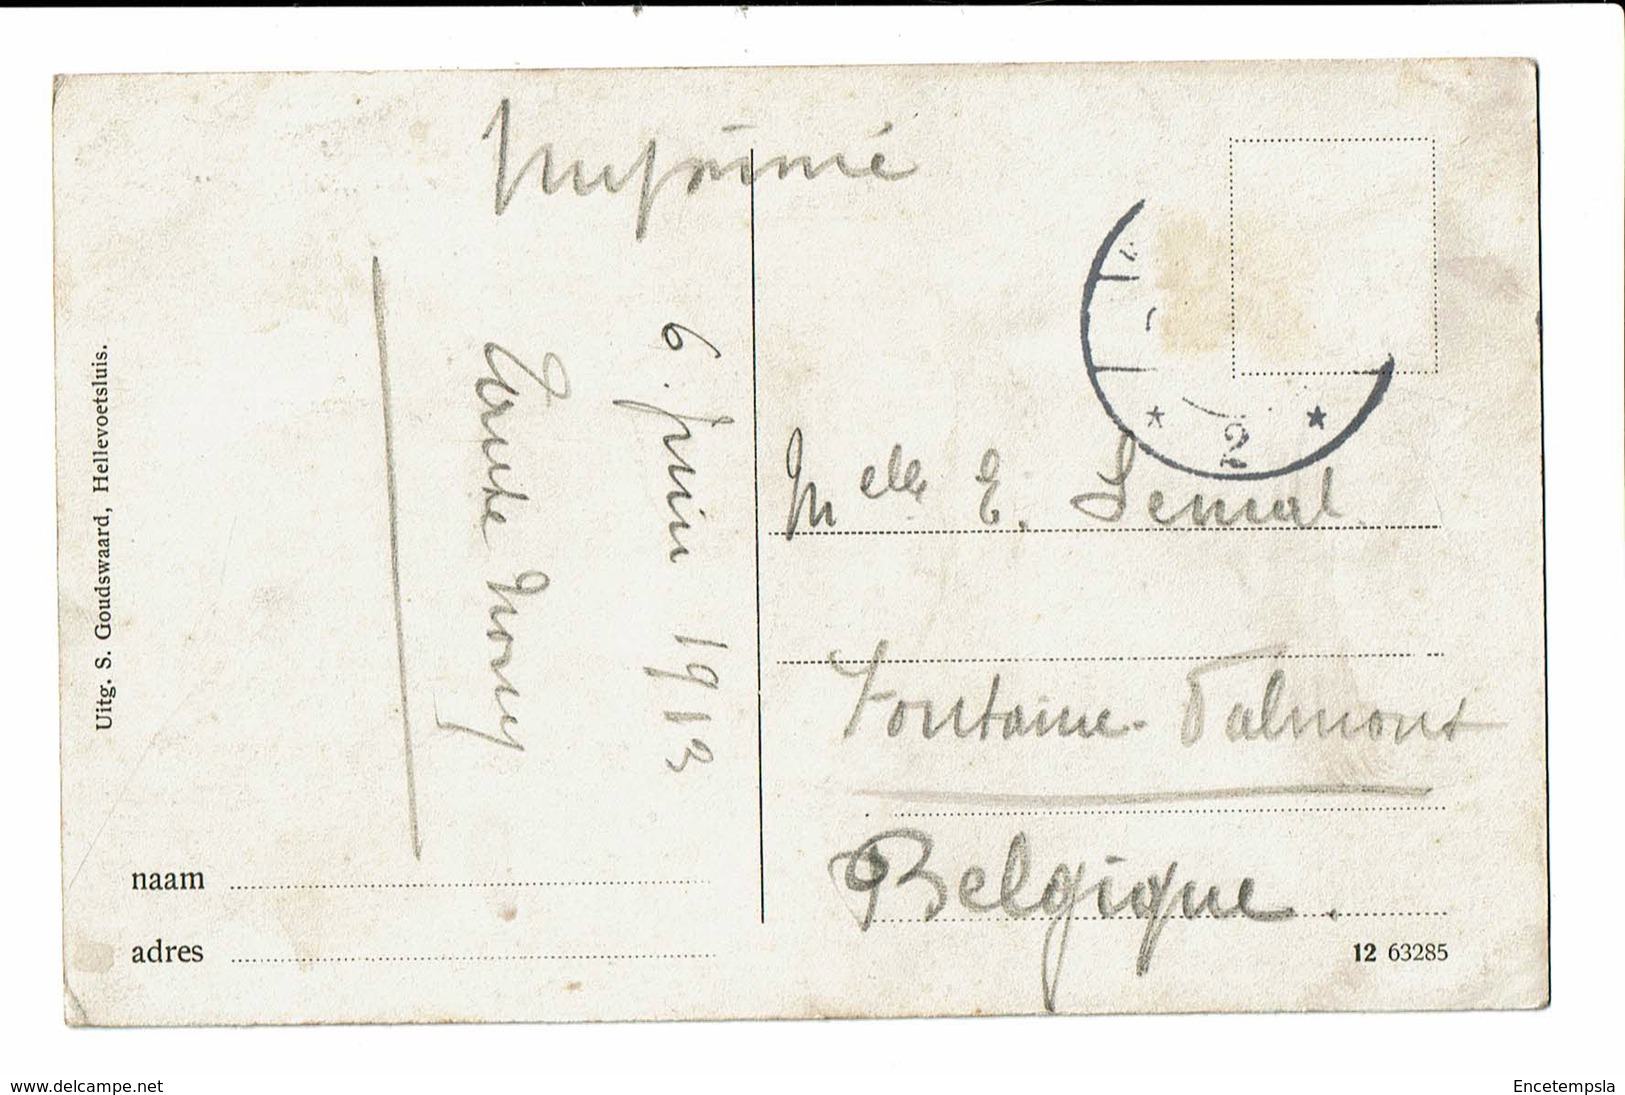 Imprimé
6 juin 1913
Uitg. S. Goudswaard, Hellevoetsluis.
Melle E. Semal.
Fontaine-Valmont
Belgique.
2
naam
adres
12 63285
www.delcampe.net
Encetempsla